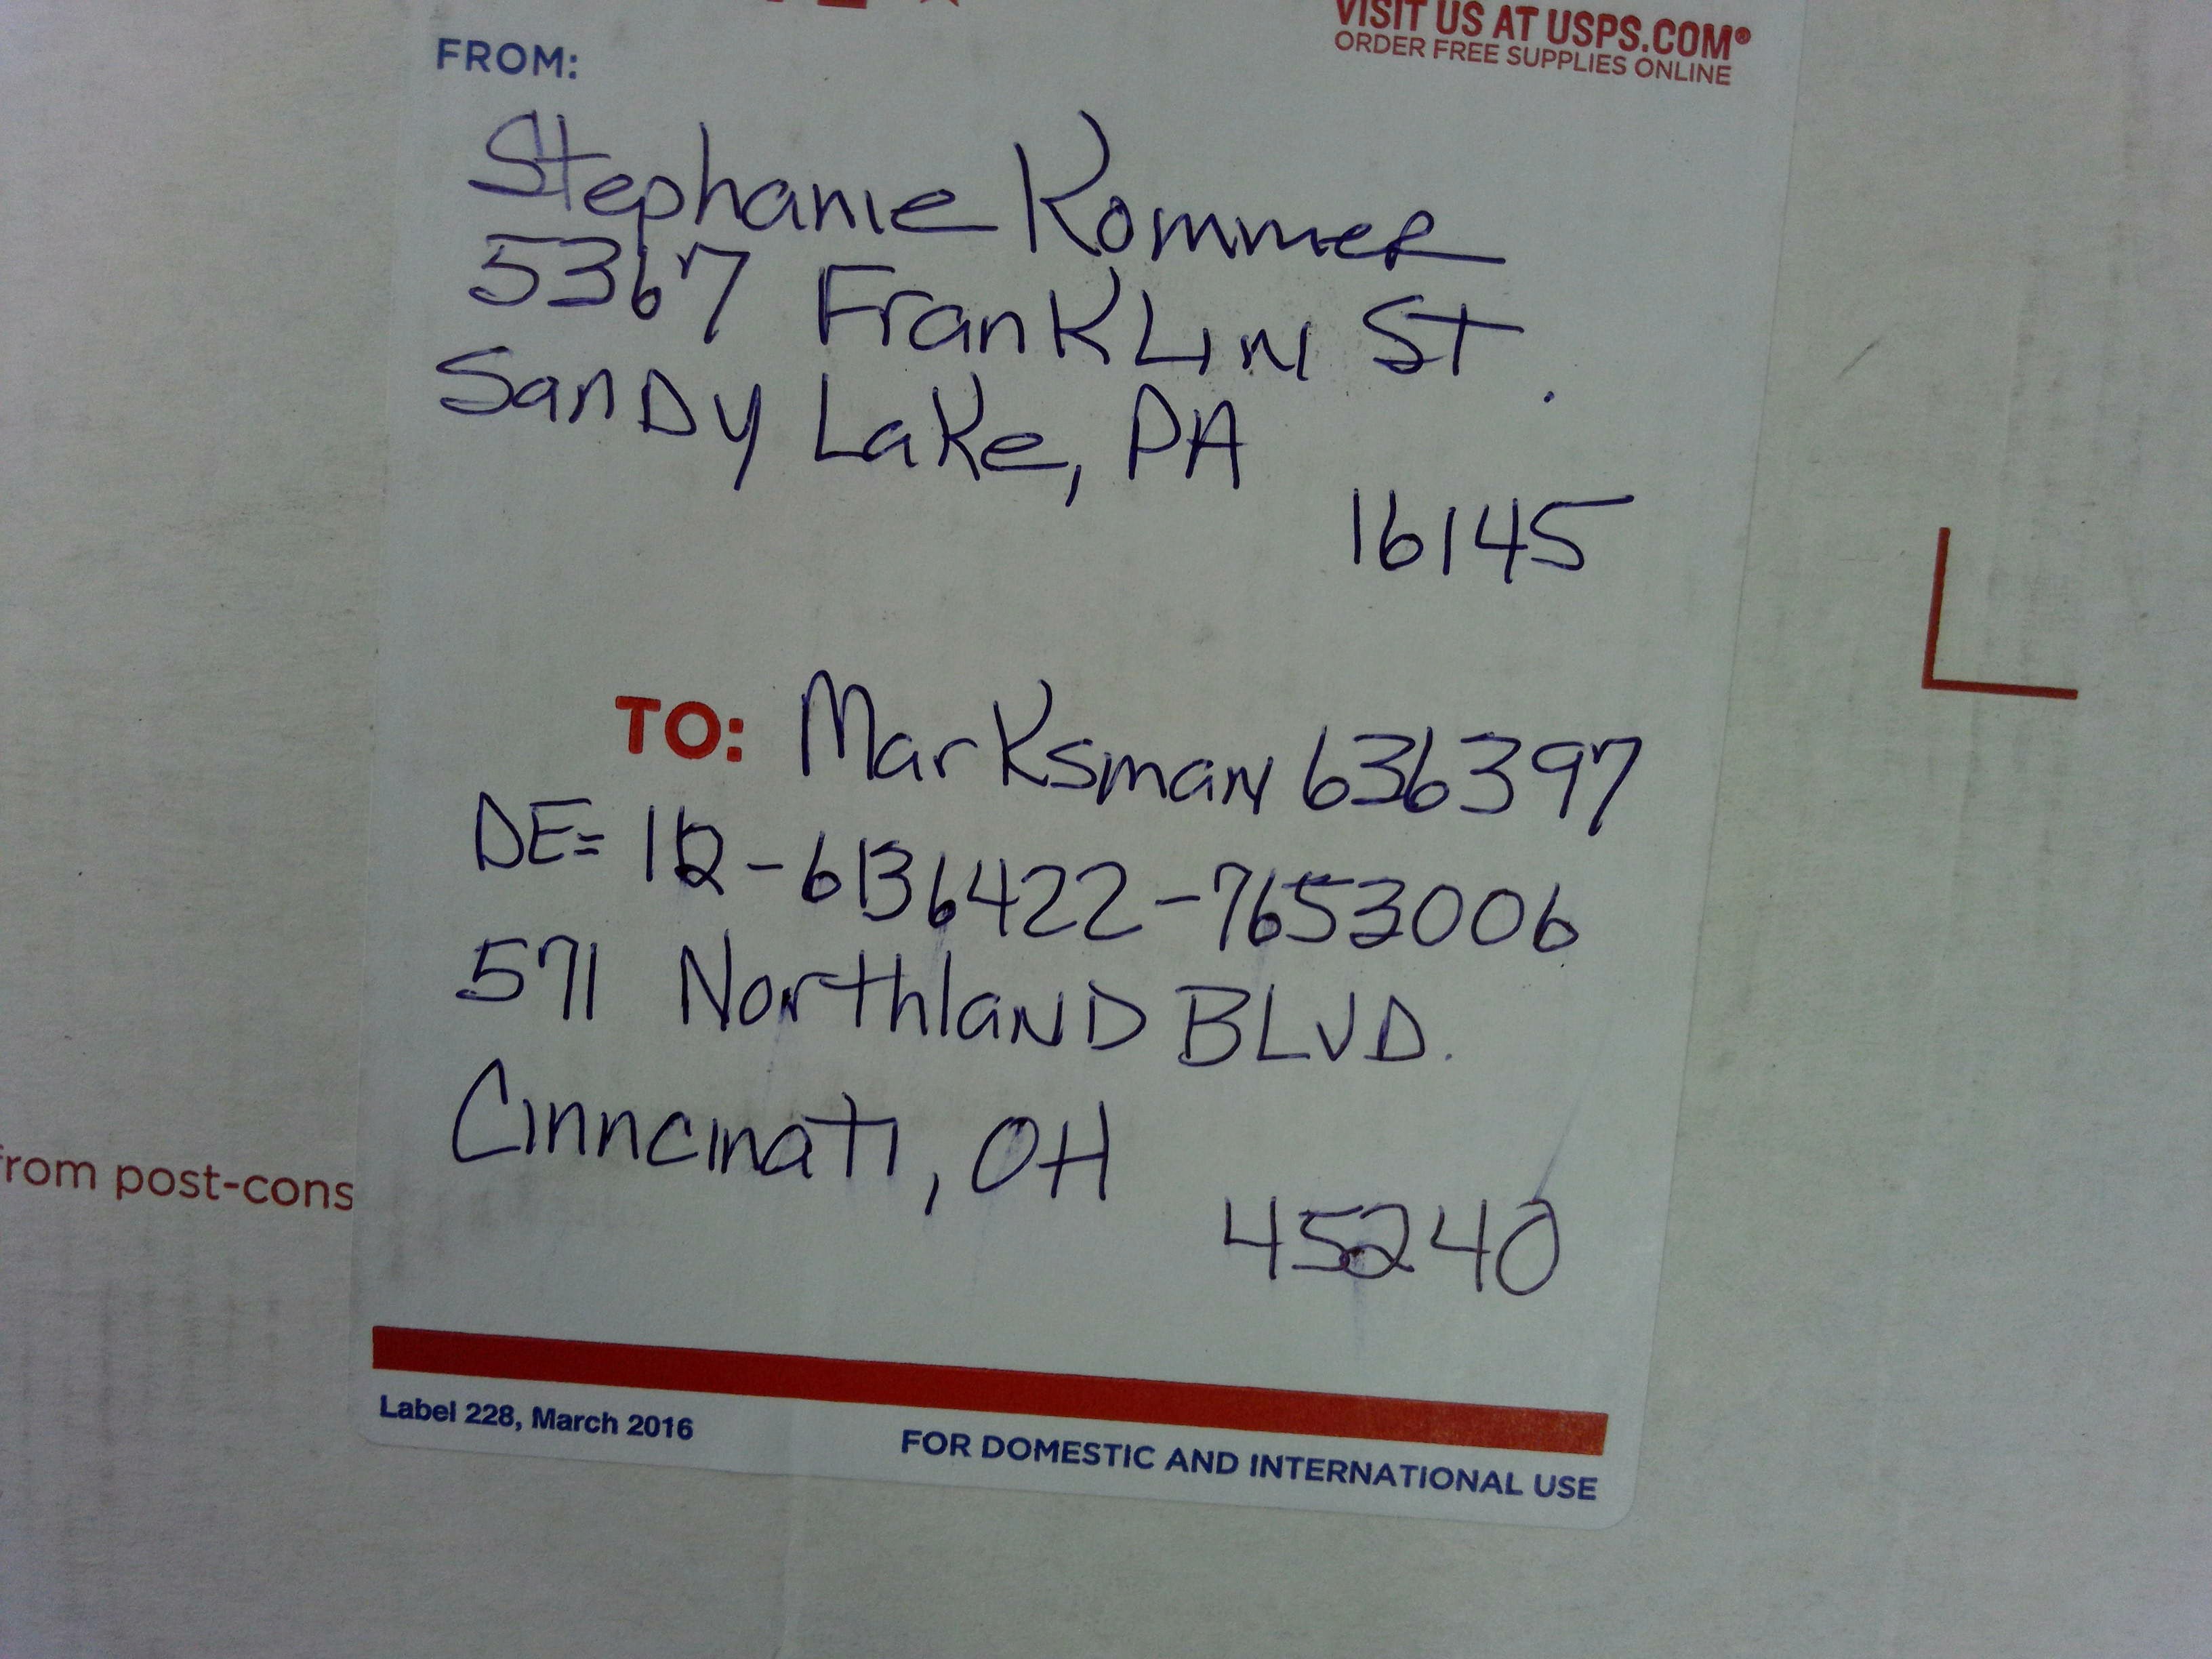 VISIT US AT USPS.COM®
ORDER FREE SUPPLIES ONLINE
FROM:
Stephanie Kommer
5367 Franklin St.
Sandy Lake, PA
16145
TO: Marksman 636397
DE= 112-6136422-7653006
571 Northland BLVD.
Cinncinati, OH
45240
rom post-cons
Label 228, March 2016
FOR DOMESTIC AND INTERNATIONAL USE